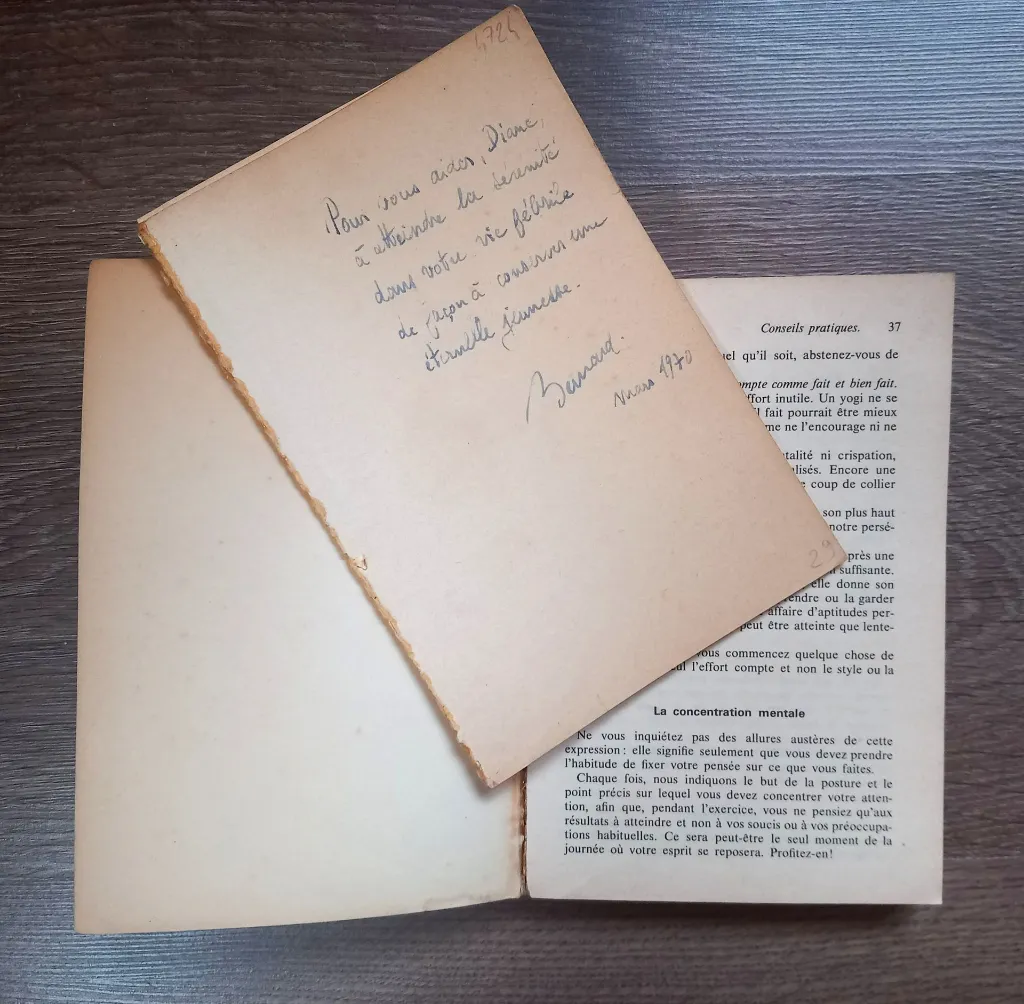 4724
Pour vous aider, Diane,
à atteindre la sérénité
dans votre vie fébrile
de façon à conserver une
éternelle jeunesse.
Bernard.
Mars 1970
29
Conseils pratiques. 37
uel qu'il soit, abstenez-vous de
ompte comme fait et bien fait.
ffort inutile. Un yogi ne se
l fait pourrait être mieux
me ne l'encourage ni ne
talité ni crispation,
alisés. Encore une
e coup de collier
son plus haut
notre persé-
près une
suffisante.
elle donne son
endre ou la garder
affaire d'aptitudes per-
peut être atteinte que lente-
vous commencez quelque chose de
ul l'effort compte et non le style ou la
La concentration mentale
Ne vous inquiétez pas des allures austères de cette
expression : elle signifie seulement que vous devez prendre
l'habitude de fixer votre pensée sur ce que vous faites.
Chaque fois, nous indiquons le but de la posture et le
point précis sur lequel vous devez concentrer votre atten-
tion, afin que, pendant l'exercice, vous ne pensiez qu'aux
résultats à atteindre et non à vos soucis ou à vos préoccupa-
tions habituelles. Ce sera peut-être le seul moment de la
journée où votre esprit se reposera. Profitez-en!